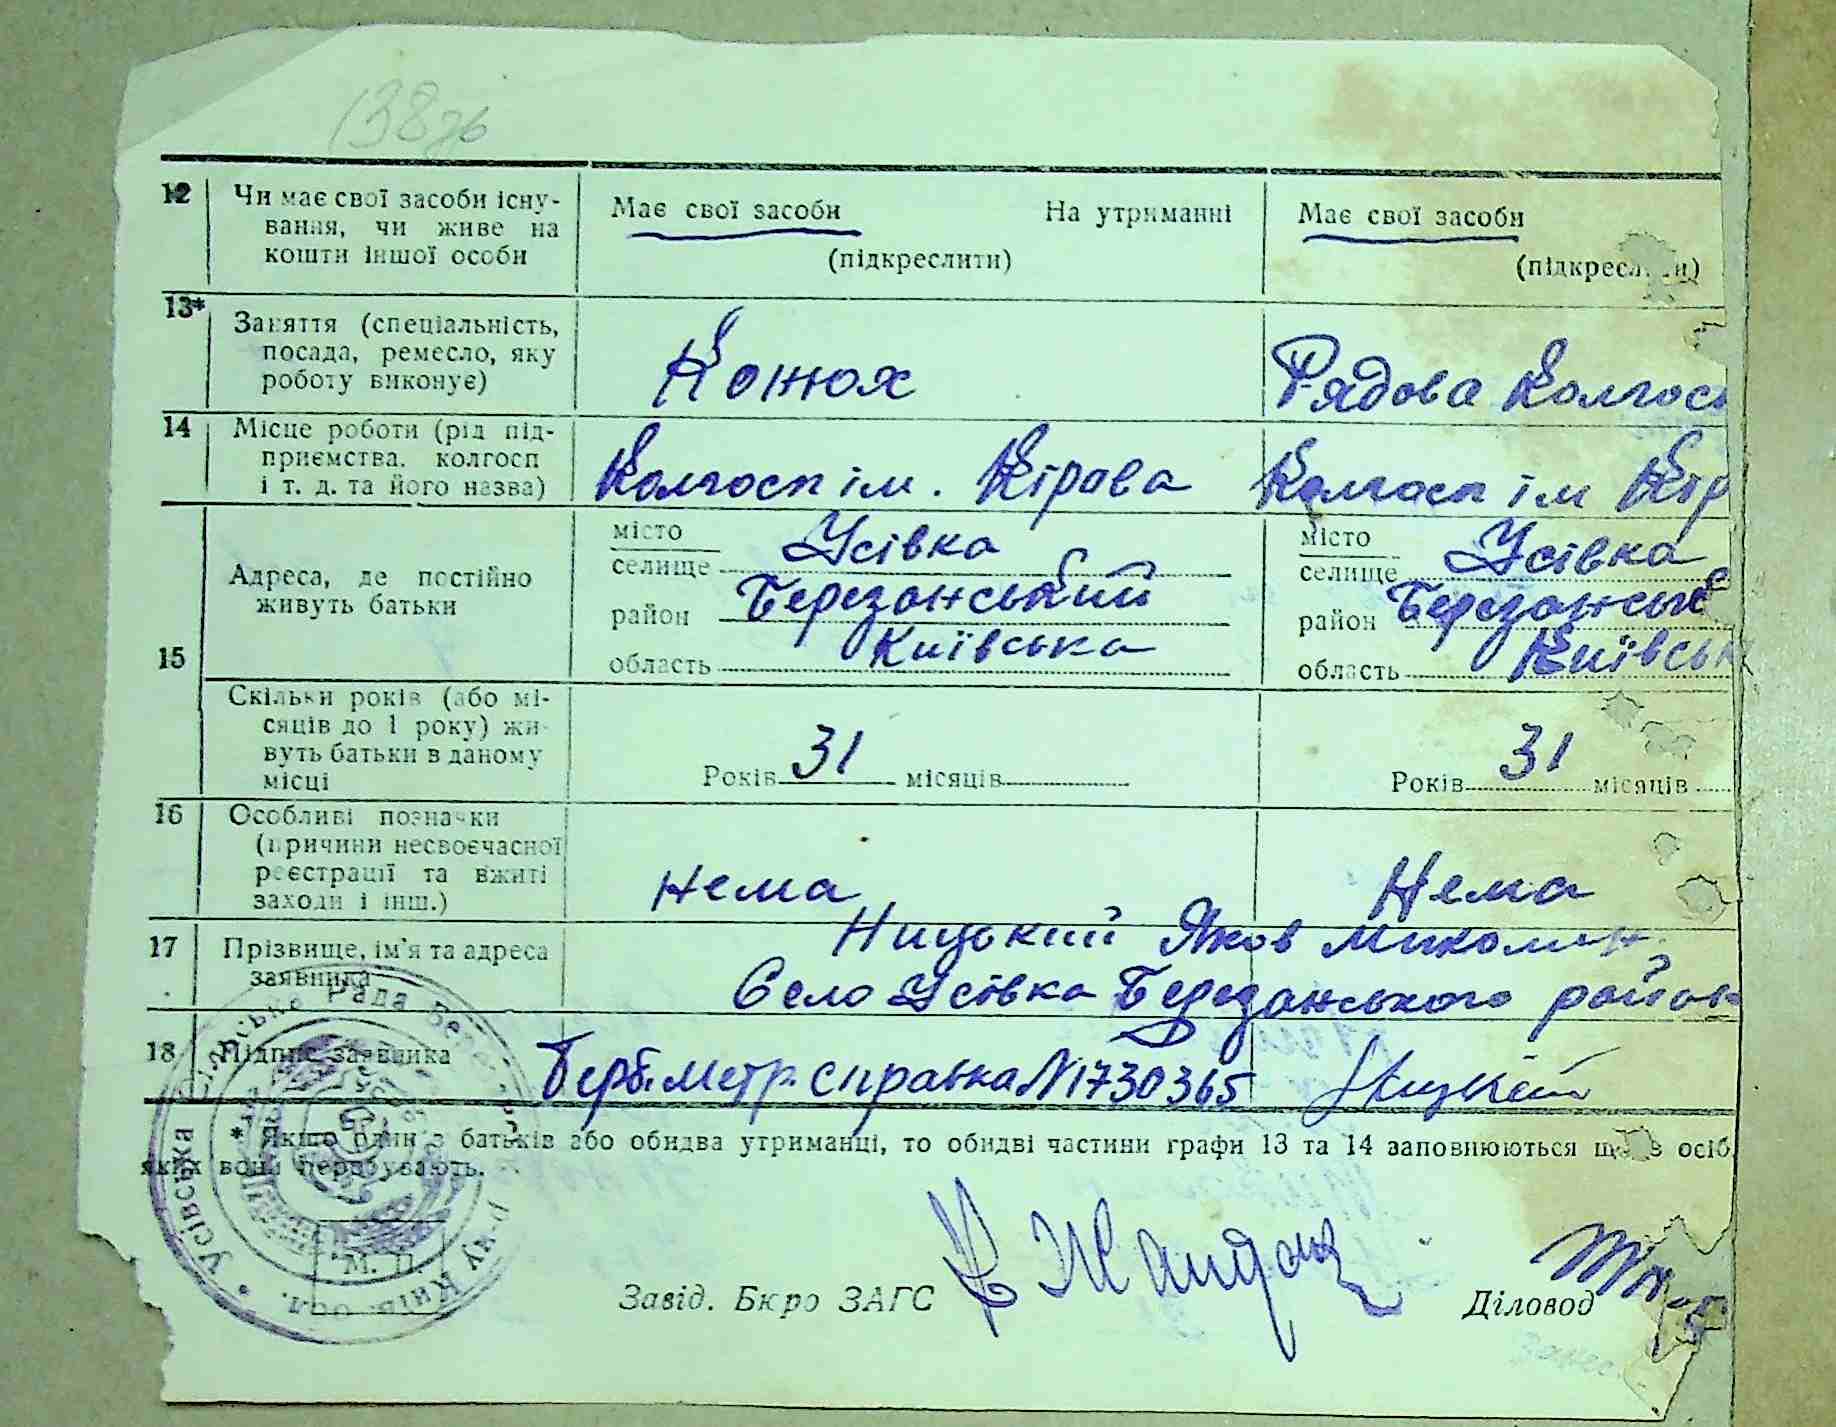 138зв
12 Чи має свої засоби існу- Має свої засоби На утриманні Має свої засоби
вання, чи живе на (підкреслити) (підкреслити)
кошти іншої особи
13* Заняття (спеціальність, Конюх Рядова колгосп
посада, ремесло, яку
роботу виконує)
14 Місце роботи (рід під- Колгосп ім. Кірова Колгосп ім Кір
приємства, колгосп
і т. д. та його назва)
15 Адреса, де постійно місто Усівка місто Усівка
живуть батьки селище селище
район Березанський район Березанськ
область Київська область Київськ
Скільки років (або мі- Років 31 місяців Років 31 місяців
сяців до 1 року) жи-
вуть батьки в даному
місці
16 Особливі позначки Нема Нема
(причини несвоєчасної
реєстрації та вжиті
заходи і інш.)
17 Прізвище, ім'я та адреса Ницький Яков Микол
заявника Село Усівка Березанського район
18 Підпис заявника Герб. метр. справка N 1730365 Ницький
* Якщо один з батьків або обидва утриманці, то обидві частини графи 13 та 14 заповнюються що осіб,
яких вони перебувають.
Усівська сільська Рада Бере р-ну Київ. обл.
М. П.
Завід. Бюро ЗАГС Діловод